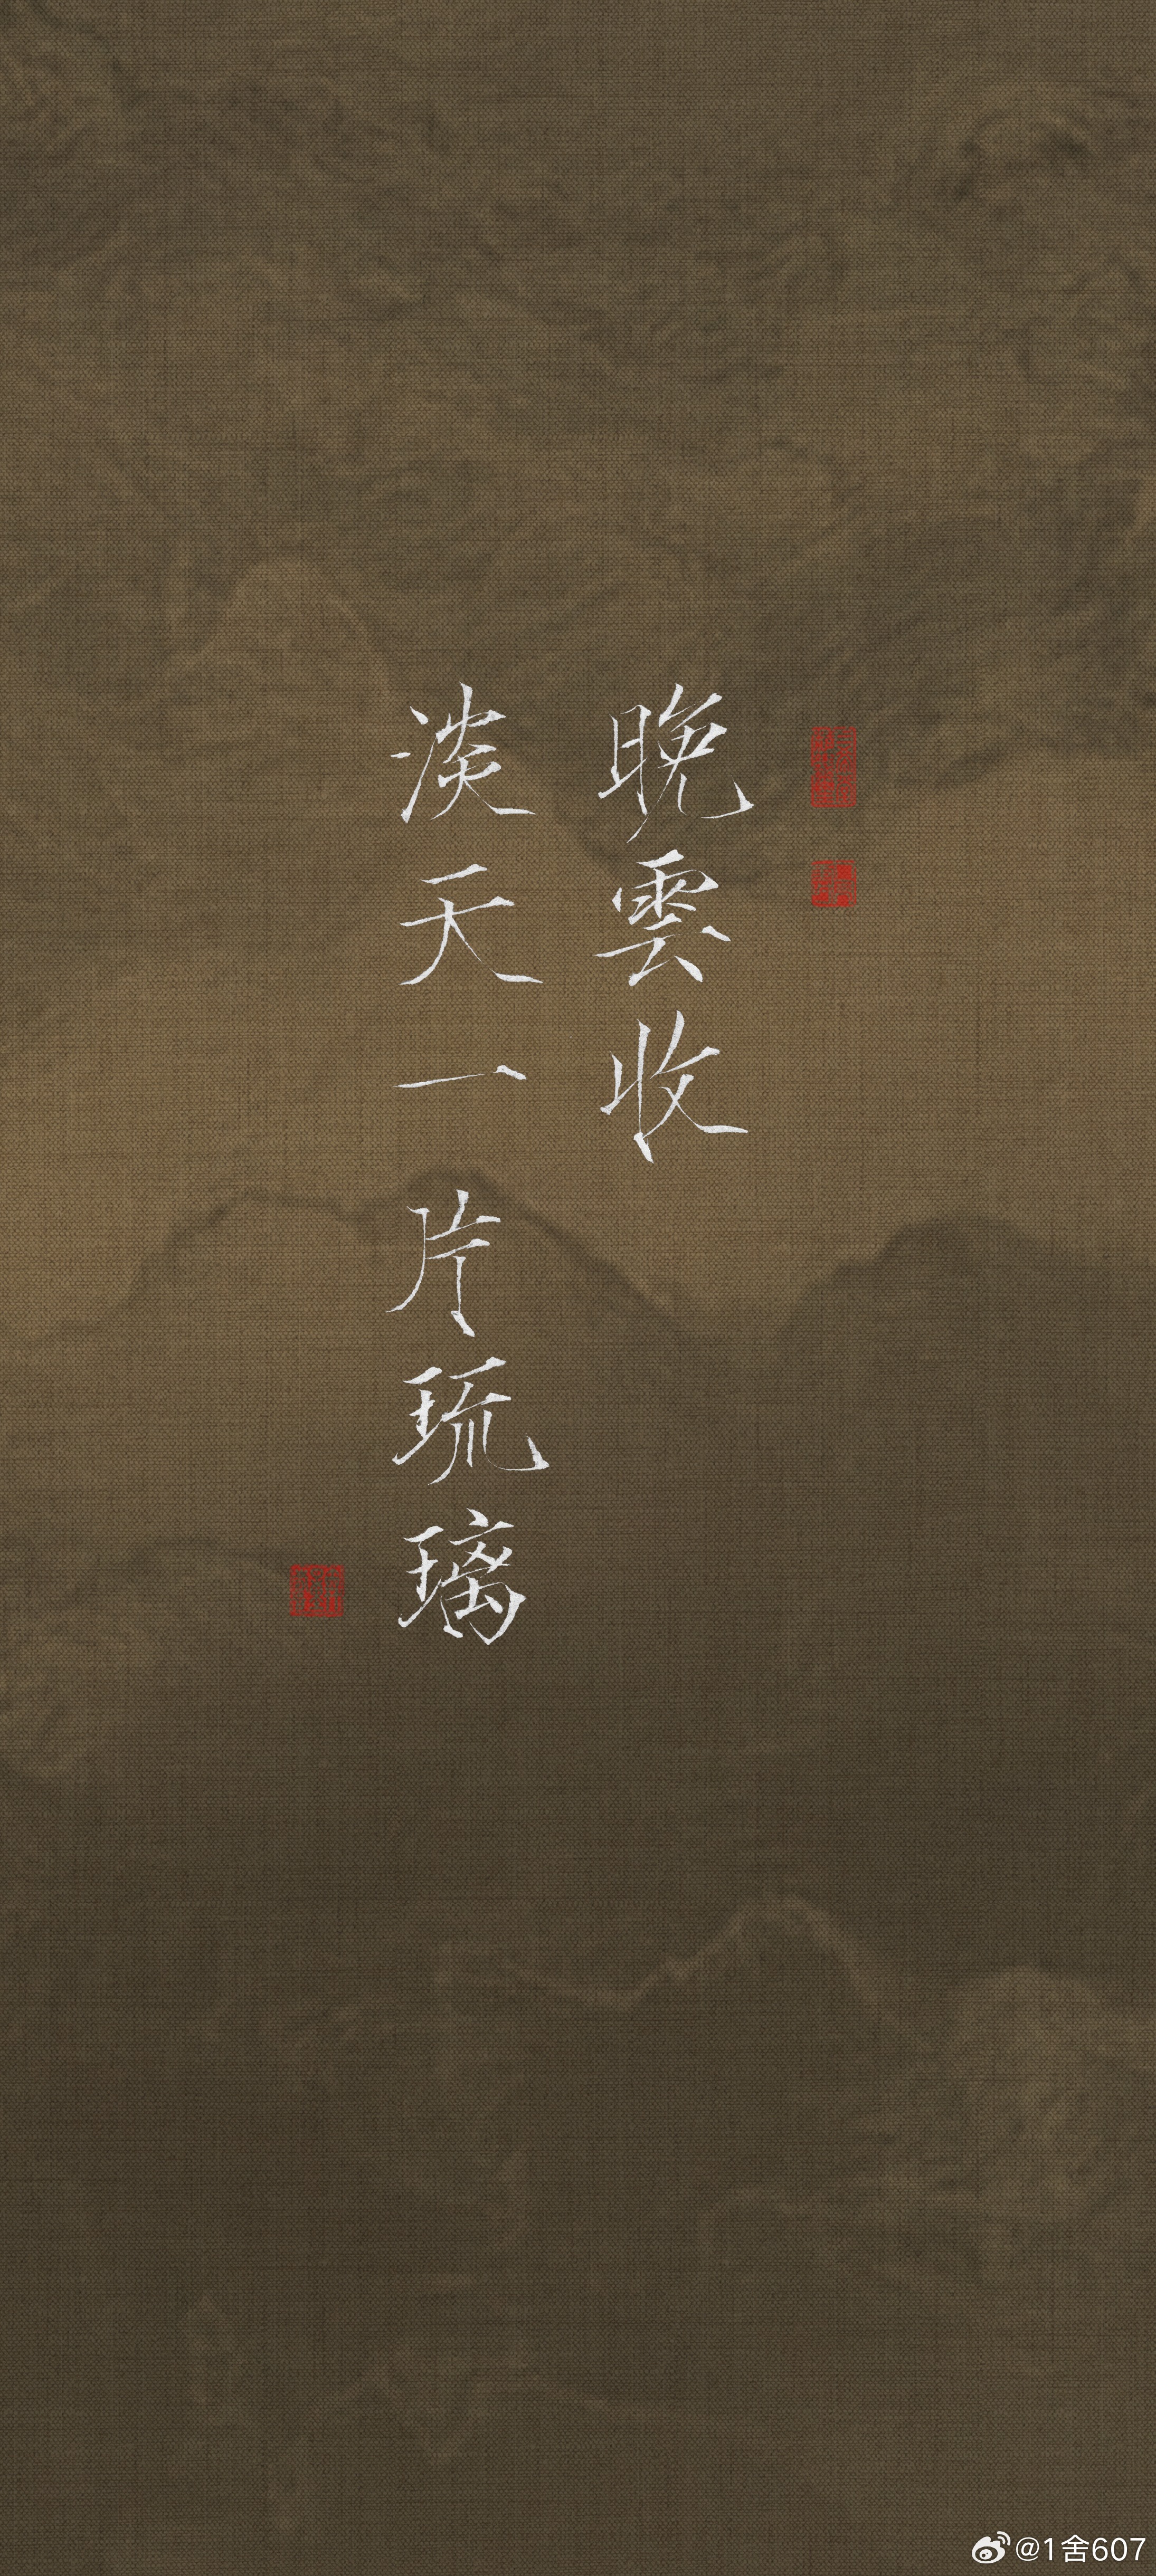 晚雲收
淡天一片琉璃
@1舍607